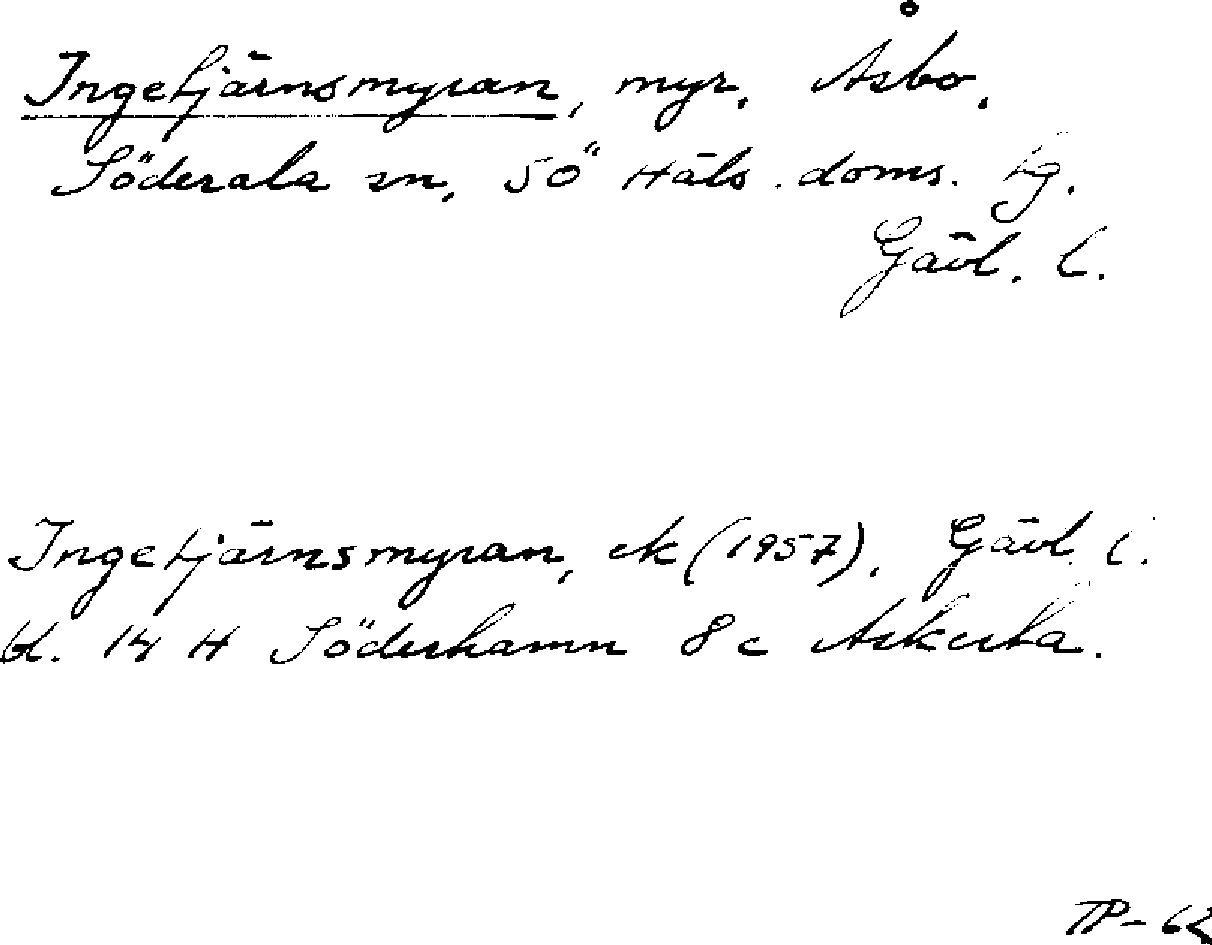 Ingetjärnsmyran, myr, Åsbo,
Söderala sn, SÖ Häls. doms. tg.
Gävl. l.
Ingetjärnsmyran, ek (1957), Gävl. l.
bl. 14 H Söderhamn 8 c Askesta.
TP-62